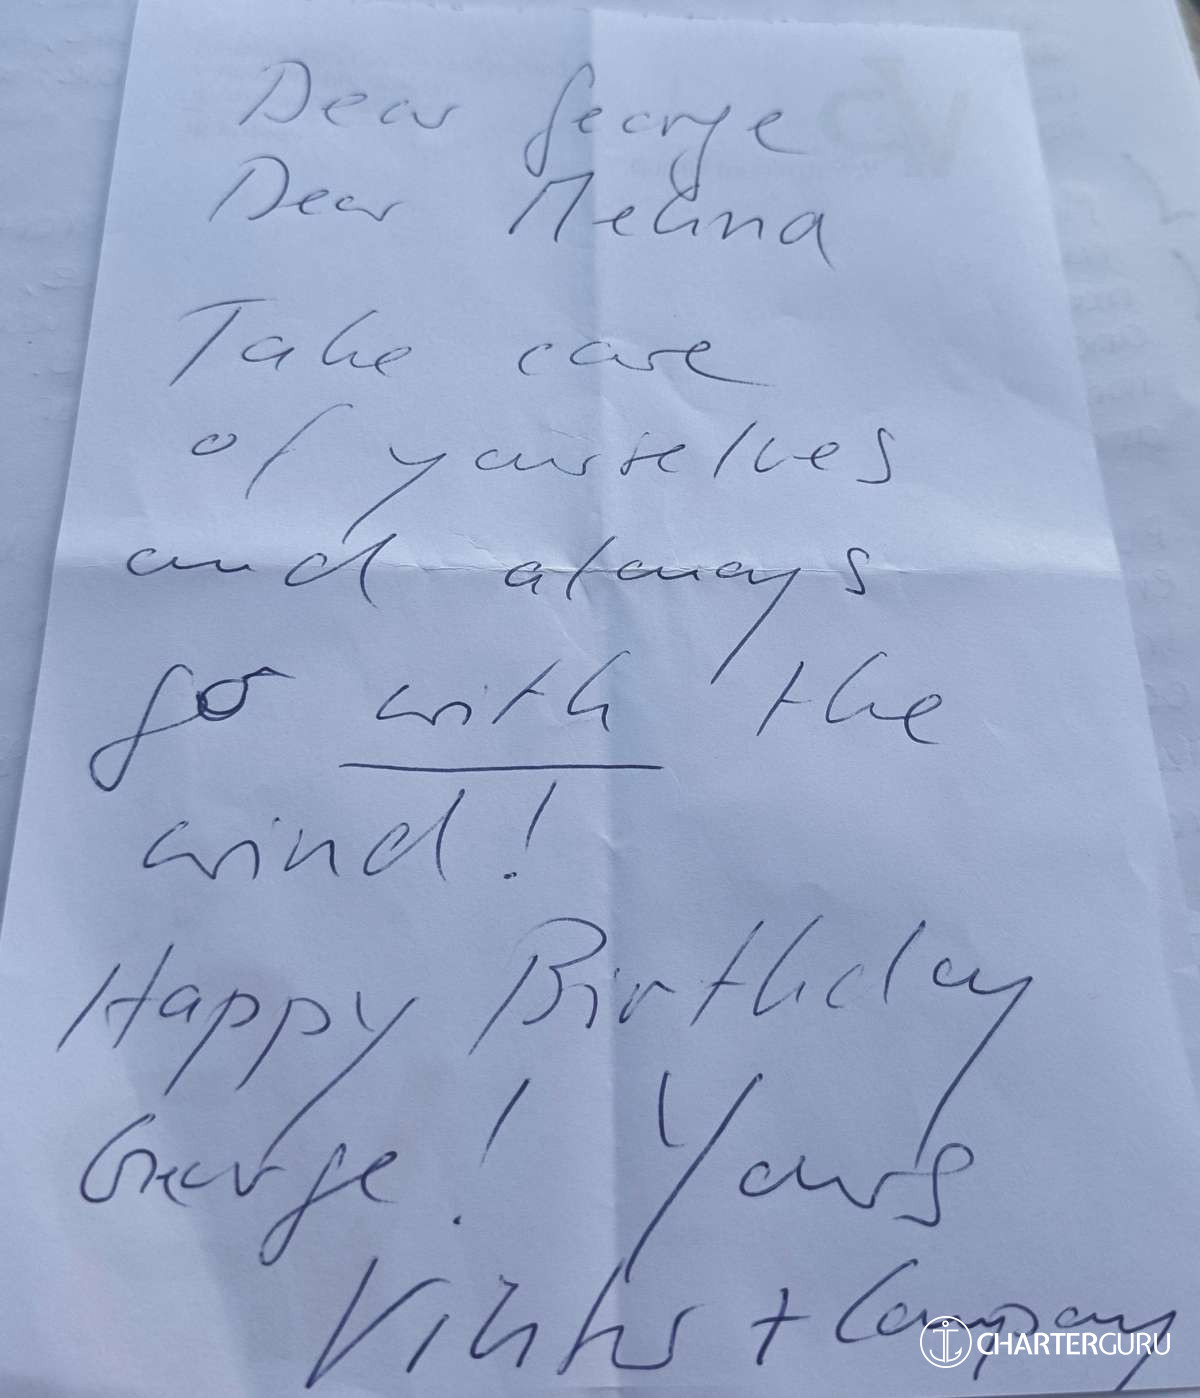 Dear George
Dear Melina
Take care
of yourselves
and always
go with the
wind!
Happy Birthday
George! Yours
+ Company
CHARTERGURU